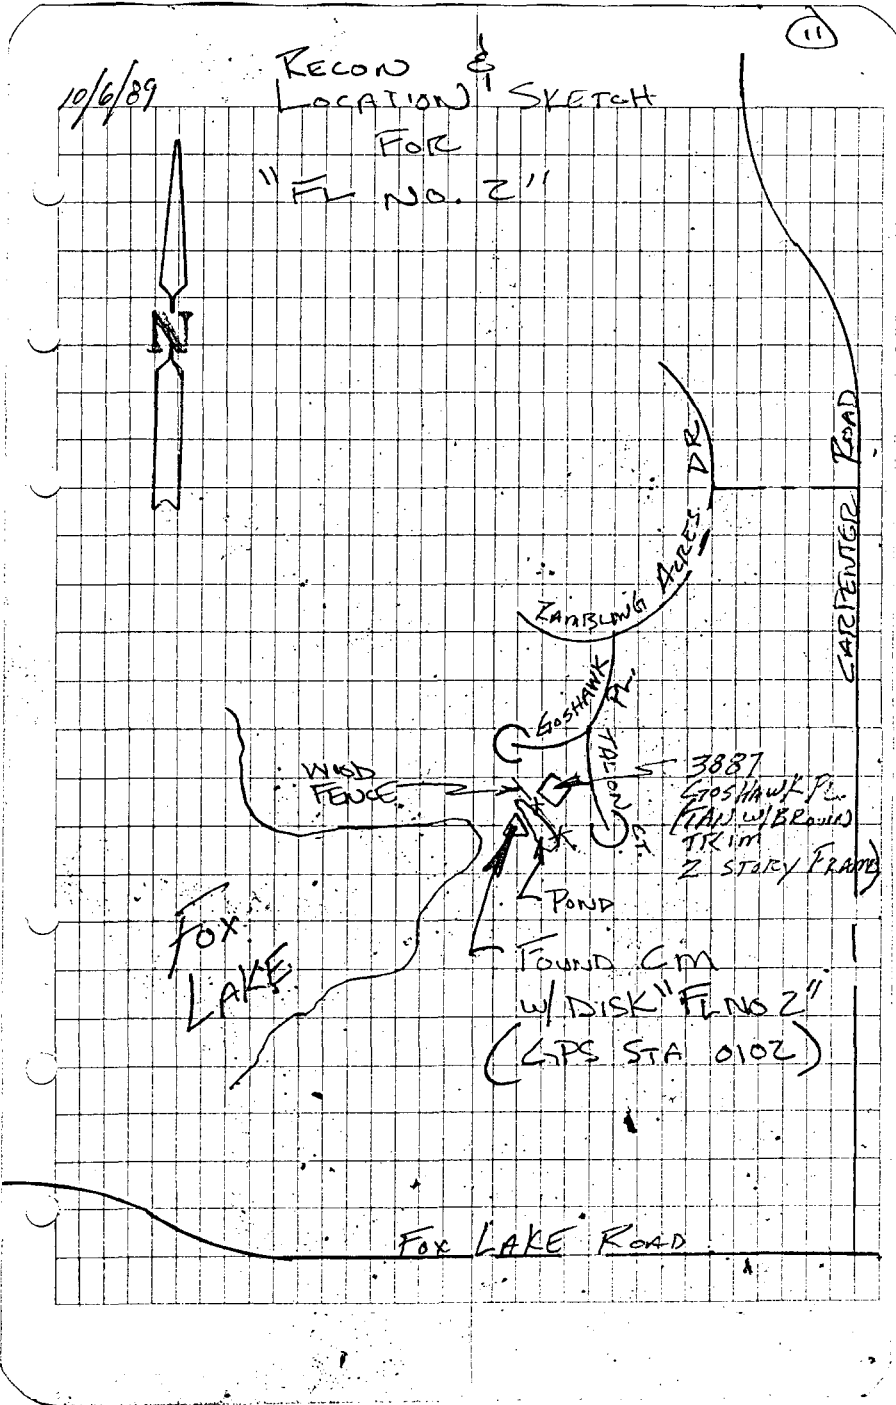 11
10/6/89
RECON &
LOCATION SKETCH
FOR
"FL NO. 2"
N
CARPENTER ROAD
ZAMBLUNG ACRES DR
GOSHAWK PL.
TALON CT.
WOOD
FENCE
3887
GOSHAWK PL.
(TAN W/BROWN
TRIM
2 STORY FRAME)
POND
FOX
LAKE
FOUND CM
W/ DISK "FL NO 2"
(GPS STA 0102)
FOX LAKE ROAD